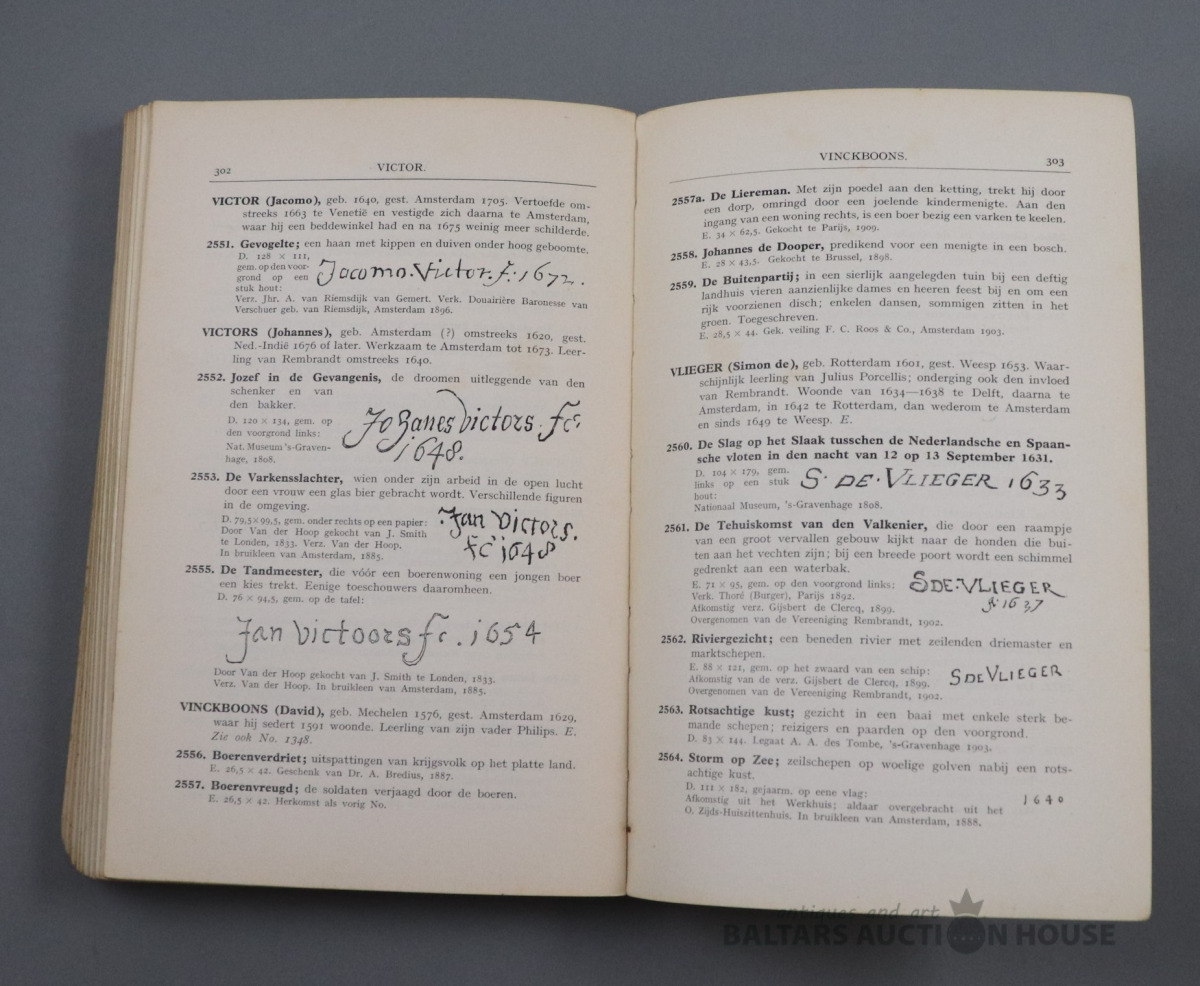 302
VICTOR.
VICTOR (Jacomo), geb. 1640, gest. Amsterdam 1705. Vertoefde om-
streeks 1663 te Venetië en vestigde zich daarna te Amsterdam,
waar hij een beddewinkel had en na 1675 weinig meer schilderde.
2551. Gevogelte; een haan met kippen en duiven onder hoog geboomte.
D. 128 × 111,
gem. op den voor-
grond op een
stuk hout:
Jacomo. Victor. f. 1672.
Verz. Jhr. A. van Riemsdijk van Gemert. Verk. Douairière Baronesse van
Verschuer geb. van Riemsdijk, Amsterdam 1896.
VICTORS (Johannes), geb. Amsterdam (?) omstreeks 1620, gest.
Ned.-Indië 1676 of later. Werkzaam te Amsterdam tot 1673. Leer-
ling van Rembrandt omstreeks 1640.
2552. Jozef in de Gevangenis, de droomen uitleggende van den
schenker en van
den bakker.
D. 120 × 134, gem. op
den voorgrond links:
Nat. Museum 's-Graven-
hage, 1808.
Johanes Victors. fc
1648.
2553. De Varkensslachter, wien onder zijn arbeid in de open lucht
door een vrouw een glas bier gebracht wordt. Verschillende figuren
in de omgeving.
D. 79,5×99,5, gem. onder rechts op een papier:
Door Van der Hoop gekocht van J. Smith
te Londen, 1833. Verz. Van der Hoop.
In bruikleen van Amsterdam, 1885.
Jan Victors.
fc 1648
2555. De Tandmeester, die vóór een boerenwoning een jongen boer
een kies trekt. Eenige toeschouwers daaromheen.
D. 76 × 94,5, gem. op de tafel:
Jan Victoors fc. 1654
Door Van der Hoop gekocht van J. Smith te Londen, 1833.
Verz. Van der Hoop. In bruikleen van Amsterdam, 1885.
VINCKBOONS (David), geb. Mechelen 1576, gest. Amsterdam 1629,
waar hij sedert 1591 woonde. Leerling van zijn vader Philips. E.
Zie ook No. 1348.
2556. Boerenverdriet; uitspattingen van krijgsvolk op het platte land.
E. 26,5 × 42. Geschenk van Dr. A. Bredius, 1887.
2557. Boerenvreugd; de soldaten verjaagd door de boeren.
E. 26,5 × 42. Herkomst als vorig No.
VINCKBOONS.
303
2557a. De Liereman. Met zijn poedel aan den ketting, trekt hij door
een dorp, omringd door een joelende kindermenigte. Aan den
ingang van een woning rechts, is een boer bezig een varken te keelen.
E. 34 × 62,5. Gekocht te Parijs, 1909.
2558. Johannes de Dooper, predikend voor een menigte in een bosch.
E. 28 × 43,5. Gekocht te Brussel, 1898.
2559. De Buitenpartij; in een sierlijk aangelegden tuin bij een deftig
landhuis vieren aanzienlijke dames en heeren feest bij en om een
rijk voorzienen disch; enkelen dansen, sommigen zitten in het
groen. Toegeschreven.
E. 28,5 × 44. Gek. veiling F. C. Roos & Co., Amsterdam 1903.
VLIEGER (Simon de), geb. Rotterdam 1601, gest. Weesp 1653. Waar-
schijnlijk leerling van Julius Porcellis; onderging ook den invloed
van Rembrandt. Woonde van 1634—1638 te Delft, daarna te
Amsterdam, in 1642 te Rotterdam, dan wederom te Amsterdam
en sinds 1649 te Weesp. E.
2560. De Slag op het Slaak tusschen de Nederlandsche en Spaan-
sche vloten in den nacht van 12 op 13 September 1631.
D. 104 × 179, gem.
links op een stuk
hout:
S. DE. VLIEGER 1633
Nationaal Museum, 's-Gravenhage 1808.
2561. De Tehuiskomst van den Valkenier, die door een raampje
van een groot vervallen gebouw kijkt naar de honden die bui-
ten aan het vechten zijn; bij een breede poort wordt een schimmel
gedrenkt aan een waterbak.
E. 71 × 95, gem. op den voorgrond links:
Verk. Thoré (Burger), Parijs 1892.
Afkomstig verz. Gijsbert de Clercq, 1899.
Overgenomen van de Vereeniging Rembrandt, 1902.
S DE. VLIEGER
f. 1637
2562. Riviergezicht; een beneden rivier met zeilenden driemaster en
marktschepen.
E. 88 × 121, gem. op het zwaard van een schip:
Afkomstig van de verz. Gijsbert de Clercq, 1899.
Overgenomen van de Vereeniging Rembrandt, 1902.
S DE VLIEGER
2563. Rotsachtige kust; gezicht in een baai met enkele sterk be-
mande schepen; reizigers en paarden op den voorgrond.
D. 83 × 144. Legaat A. A. des Tombe, 's-Gravenhage 1903.
2564. Storm op Zee; zeilschepen op woelige golven nabij een rots-
achtige kust.
D. 111 × 182, gejaarm. op eene vlag:
1640
Afkomstig uit het Werkhuis; aldaar overgebracht uit het
O. Zijds-Huiszittenhuis. In bruikleen van Amsterdam, 1888.
antiques and art
BALTARS AUCTION HOUSE